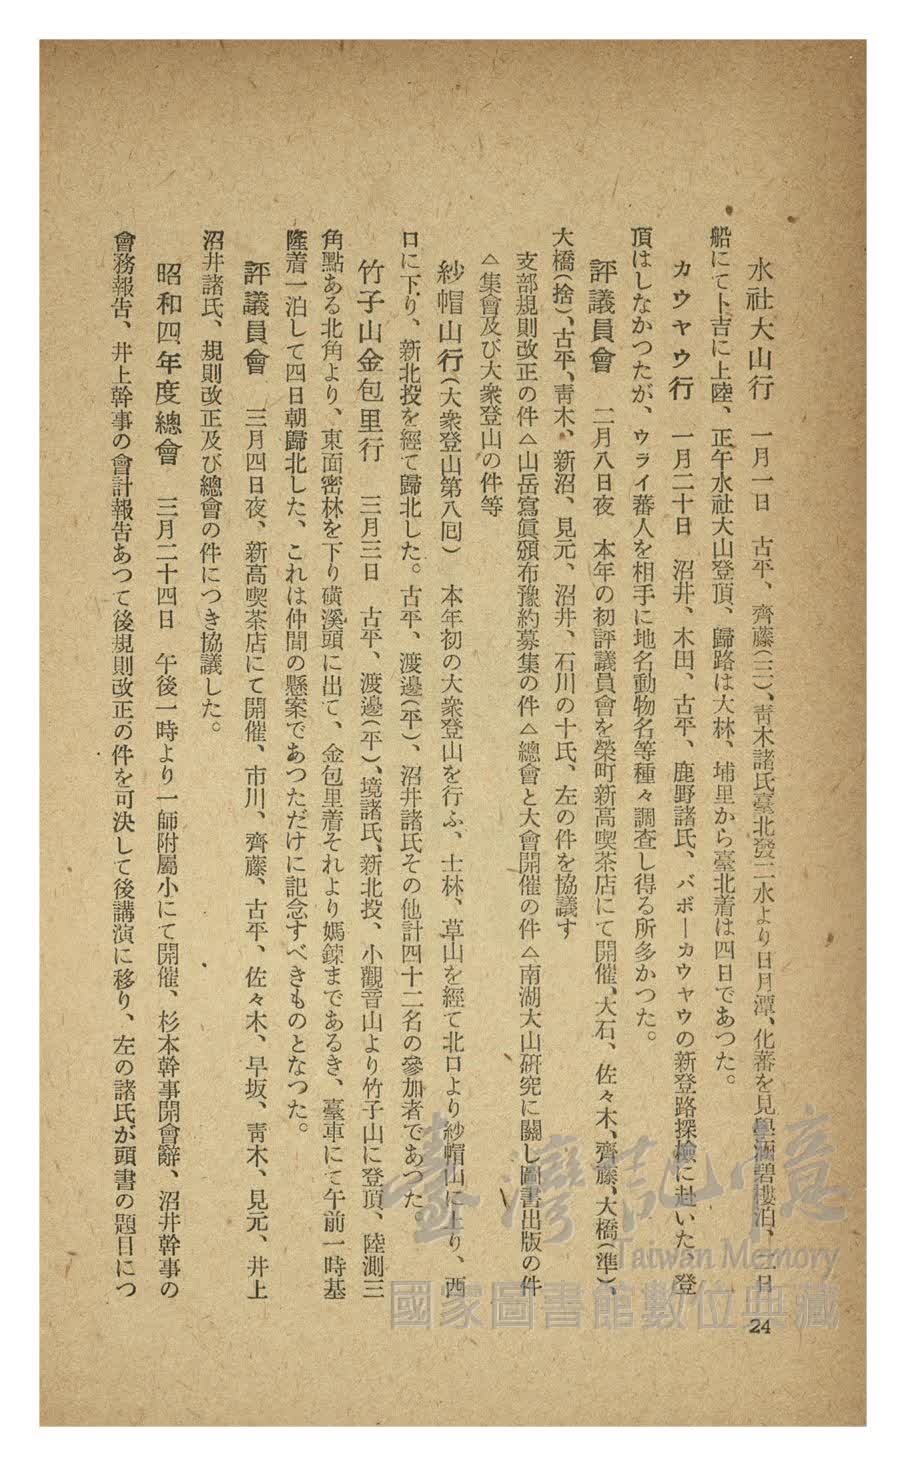 水社大山行　一月一日　古平、齊藤(三)、靑木諸氏臺北發二水より日月潭、化蕃を見學涵碧樓泊、二日
船にて卜吉に上陸、正午水社大山登頂、歸路は大林、埔里から臺北着は四日であつた。
カウヤウ行　一月二十日　沼井、木田、古平、鹿野諸氏、バボーカウヤウの新登路探檢に赴いた、登
頂はしなかつたが、ウライ蕃人を相手に地名動物名等種々調査し得る所多かつた。
評議員會　二月八日夜　本年の初評議員會を榮町新高喫茶店にて開催、大石、佐々木、齊藤、大橋(準)、
大橋(捨)、古平、靑木、新沼、見元、沼井、石川の十氏、左の件を協議す
支部規則改正の件△山岳寫眞頒布豫約募集の件△總會と大會開催の件△南湖大山硏究に關し圖書出版の件
△集會及び大衆登山の件等
紗帽山行(大衆登山第八囘)　本年初の大衆登山を行ふ、士林、草山を經て北口より紗帽山に上り、西
口に下り、新北投を經て歸北した。古平、渡邊(平)、沼井諸氏その他計四十二名の參加者であつた。
竹子山金包里行　三月三日　古平、渡邊(平)、境諸氏、新北投、小觀音山より竹子山に登頂、陸測三
角點ある北角より、東面密林を下り磺溪頭に出て、金包里着それより媽鋉まであるき、臺車にて午前一時基
隆着一泊して四日朝歸北した、これは仲間の懸案であつただけに記念すべきものとなつた。
評議員會　三月四日夜、新高喫茶店にて開催、市川、齊藤、古平、佐々木、早坂、靑木、見元、井上
沼井諸氏、規則改正及び總會の件につき協議した。
昭和四年度總會　三月二十四日　午後一時より一師附屬小にて開催、杉本幹事開會辭、沼井幹事の
會務報告、井上幹事の會計報告あつて後規則改正の件を可決して後講演に移り、左の諸氏が頭書の題目につ
24
臺灣記憶
Taiwan Memory
國家圖書館數位典藏